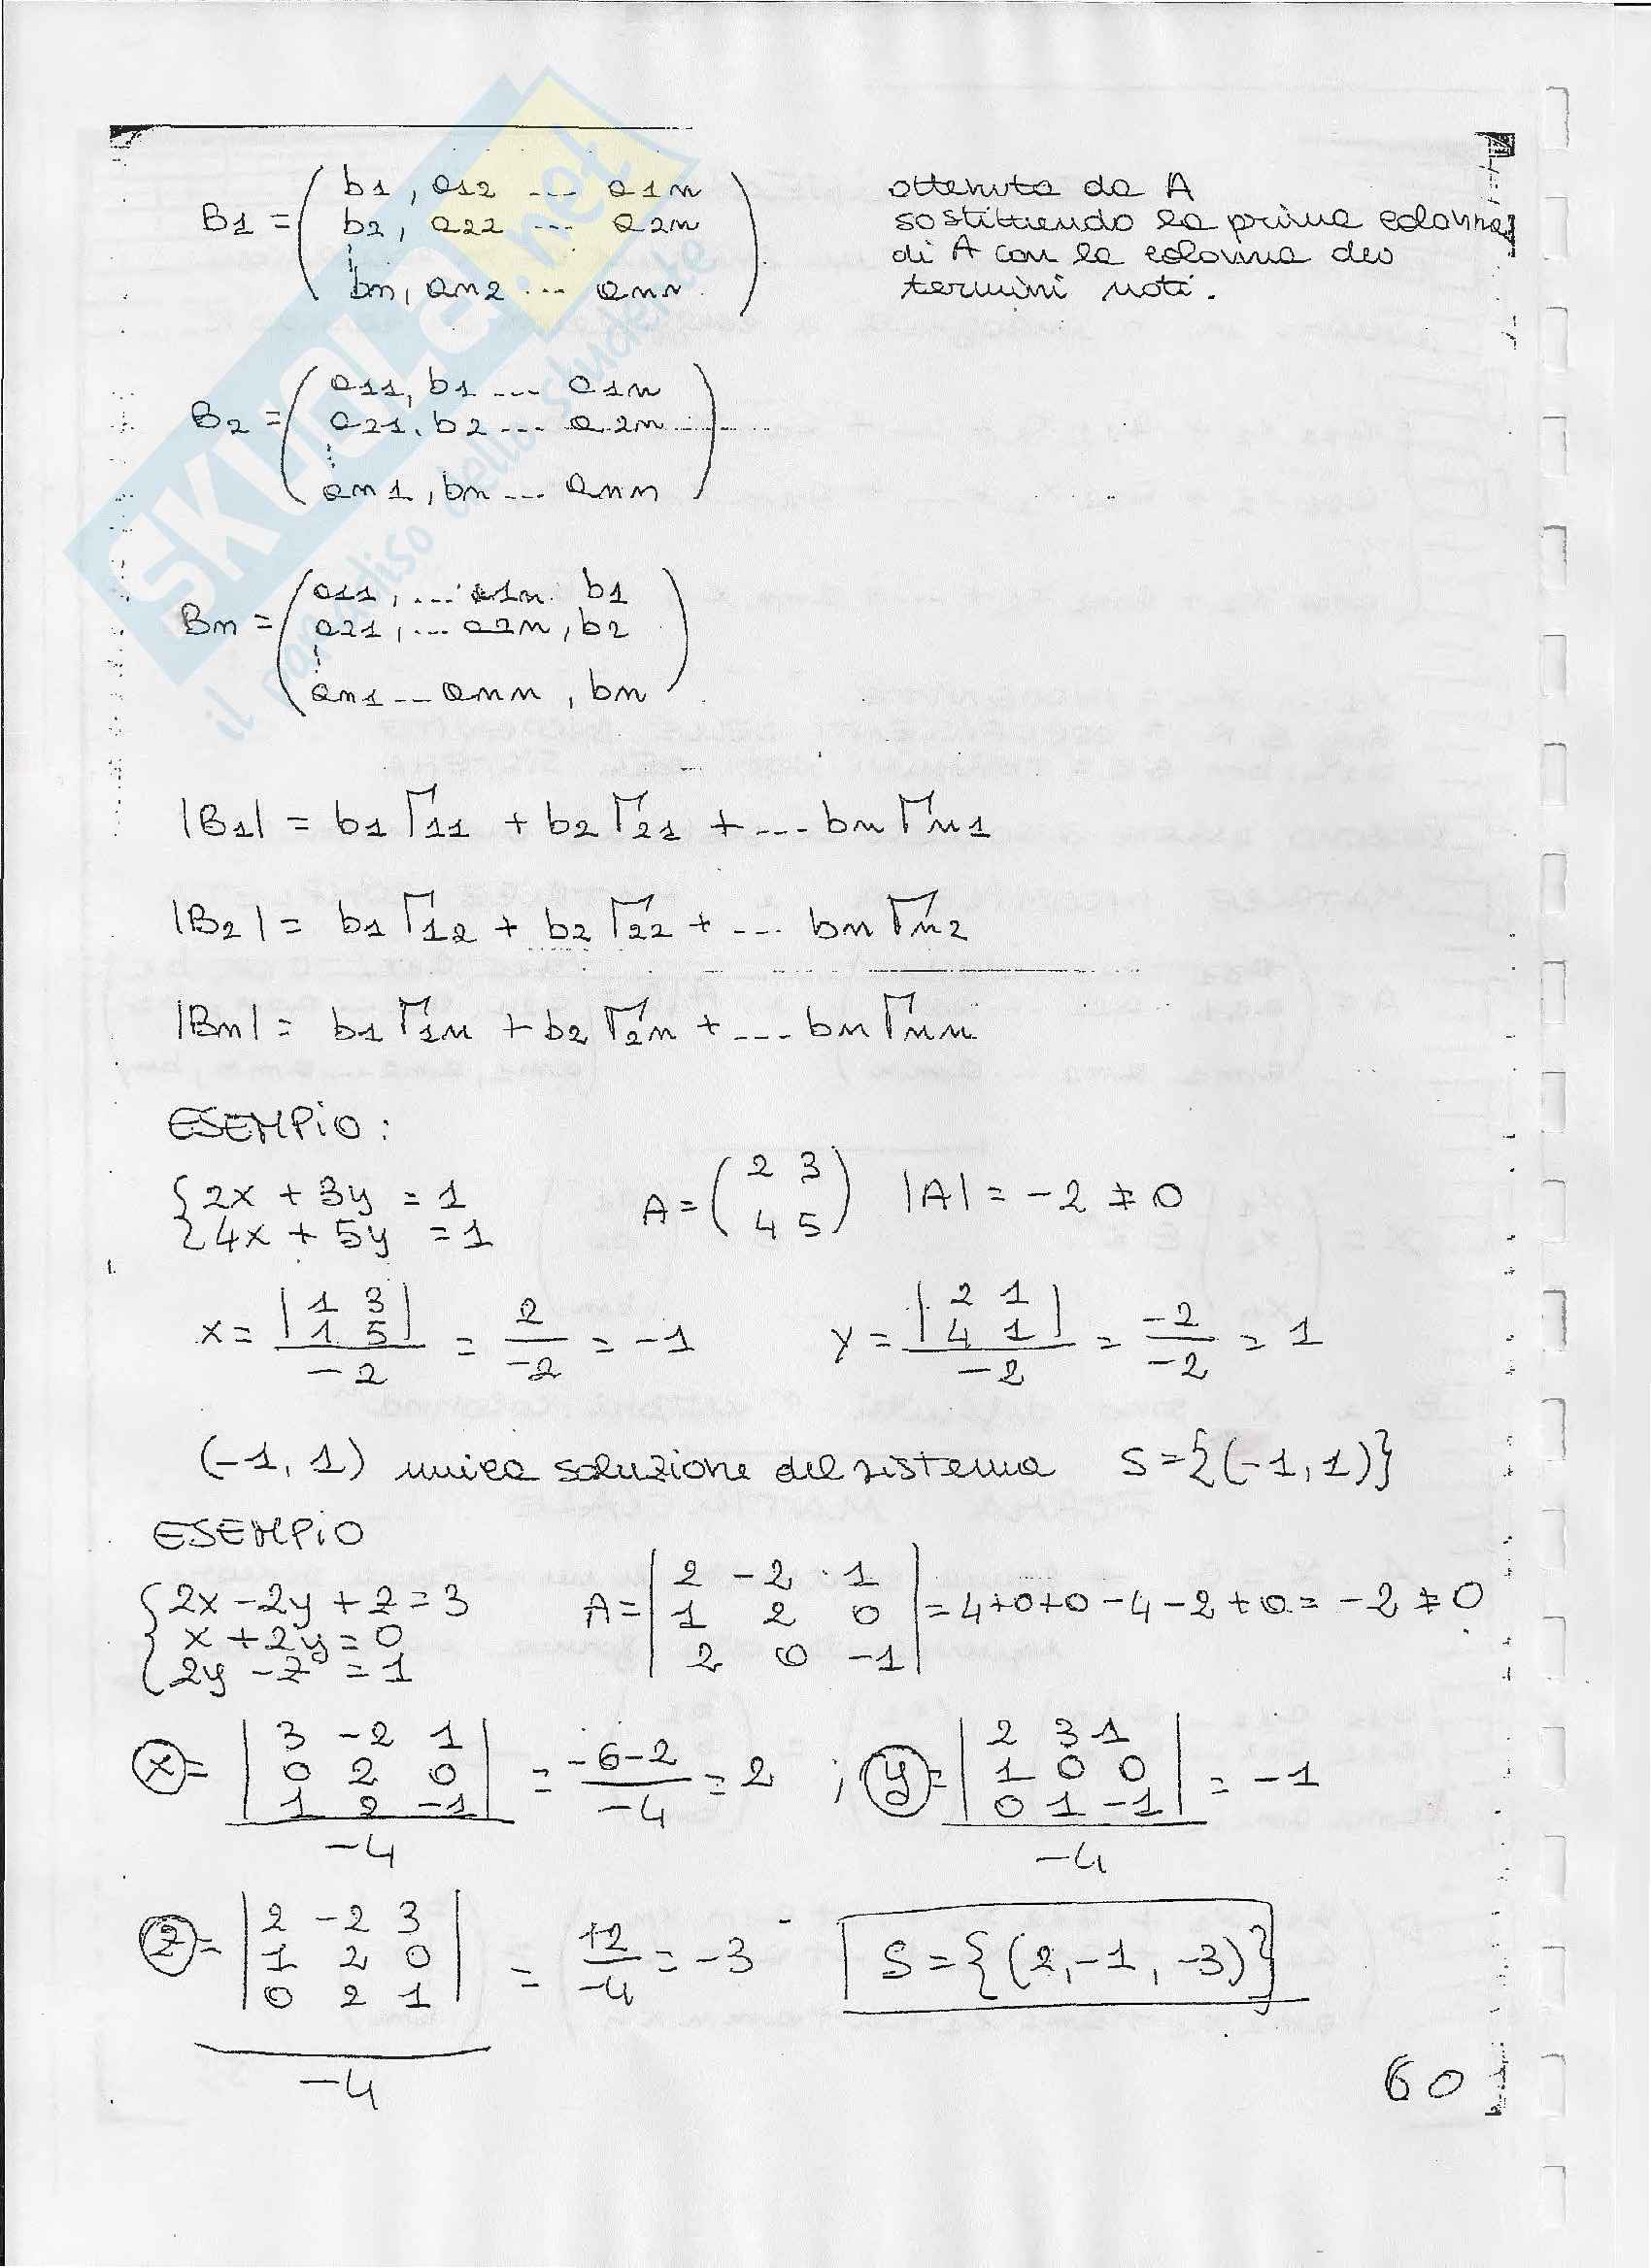 B1 = ( b1, a12 ... a1n
b2, a22 ... a2n
⋮
bn, an2 ... ann )
ottenuta da A
sostituendo la prima colonna
di A con la colonna dei
termini noti.
B2 = ( a11, b1 ... a1n
a21, b2 ... a2n
⋮
an1, bn ... ann )
Bn = ( a11, ... a1n b1
a21, ... a2n, b2
⋮
an1 ... ann, bn )
|B1| = b1 Γ11 + b2 Γ21 + ... bn Γn1
|B2| = b1 Γ12 + b2 Γ22 + ... bn Γn2
|Bn| = b1 Γ1n + b2 Γ2n + ... bn Γnn
ESEMPIO:
{ 2x + 3y = 1
4x + 5y = 1
A = ( 2 3
4 5 ) |A| = -2 ≠ 0
x = | 1 3
1 5 | / -2 = 2 / -2 = -1
y = | 2 1
4 1 | / -2 = -2 / -2 = 1
(-1, 1) unica soluzione del sistema S = {(-1, 1)}
ESEMPIO
{ 2x - 2y + z = 3
x + 2y = 0
2y - z = 1
A = | 2 -2 1
1 2 0
2 0 -1 | = 4+0+0-4-2+0 = -2 ≠ 0
x = | 3 -2 1
0 2 0
1 2 -1 | / -4 = -6-2 / -4 = 2 ;
y = | 2 3 1
1 0 0
0 1 -1 | / -4 = -1
z = | 2 -2 3
1 2 0
0 2 1 | / -4 = 12 / -4 = -3
S = {(2, -1, -3)}
60
SKUOLA.net
il paradiso dello studente